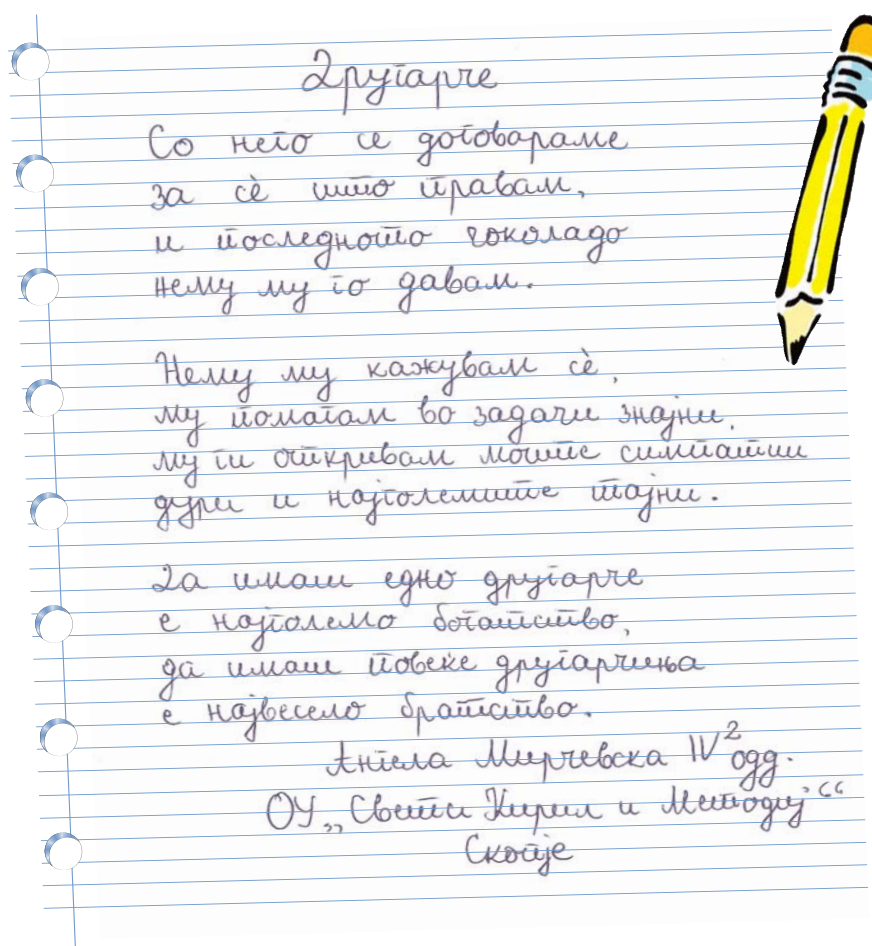 Другарче
Со него се договараме
за сѐ што правам,
и последното чоколадо
нему му го давам.
Нему му кажувам сѐ,
му помагам во задачи знајни,
му ги откривам моите симпатии
дури и најголемите тајни.
Да имаш едно другарче
е најголемо богатство,
да имаш повеќе другарчиња
е највесело братство.
Ангела Мирчевска IV² одд.
ОУ „Свети Кирил и Методиј“
Скопје